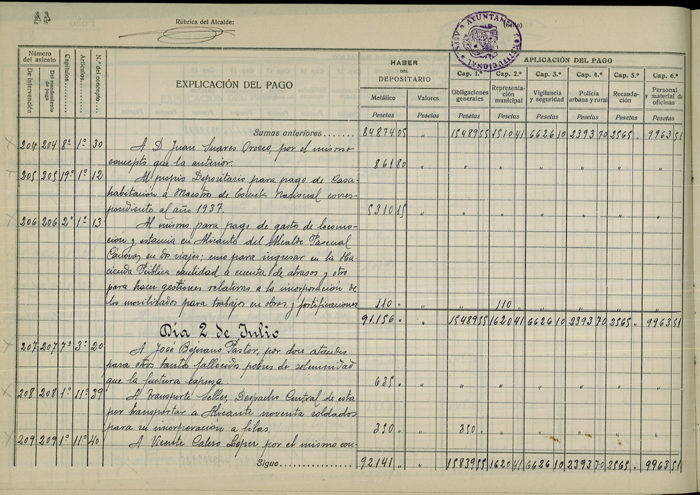 44
Rúbrica del Alcalde:
AYUNTAMIENTO CONSTITUCIONAL
Número del asiento
De Intervención
Del mandamiento de pago
Capítulos
Artículos
N.º del concepto
EXPLICACIÓN DEL PAGO
HABER DEL DEPOSITARIO
Metálico
Valores
Pesetas Pesetas
APLICACIÓN DEL PAGO
Cap. 1.º Cap. 2.º Cap. 3.º Cap. 4.º Cap. 5.º Cap. 6.º
Obligaciones generales
Representación municipal
Vigilancia y seguridad
Policía urbana y rural
Recaudación
Personal y material de oficinas
Pesetas Pesetas Pesetas Pesetas Pesetas Pesetas
Sumas anteriores 84874 05 " 15489 55 1510 41 6626 10 2393 70 2565 " 9963 51
204 204 8º 1º 30 A D. Juan Suares Orozco, por el mismo
concepto que la anterior. 861 80
205 205 19º 1º 12 Al propio Depositario para pago de Casa
habitación a Maestro de Escuela Nacional corres-
pondiente al año 1937. 5310 15
206 206 2º 1º 13 Al mismo para pago de gasto de locomo-
ción y estancia en Alicante del Alcalde Pascual
Cánovas, en dos viajes; uno para ingresar en la Ha-
cienda Pública cantidad a cuenta de atrasos y otro
para hacer gestiones relativas a la incorporación de
los movilizados para trabajos en obras y fortificaciones 110 " " 110 "
91.156 " " 15489 55 1620 41 6626 10 2393 70 2565 " 9963 51
Día 2 de Julio
207 207 7º 3º 20 A José Bejerano Pastor, por doce ataudes
para otros tantos fallecidos pobres de solemnidad
que la factura expresa. 635 "
208 208 1º 11º 39 A Transporte Seller, Despacho Central de esta
por transportar a Alicante noventa soldados
para su incorporación a filas. 350 " " 350 "
209 209 1º 11º 40 A Vicente Calero López por el mismo con-
Sigue 92.141 " " 15839 55 1620 41 6626 10 2393 70 2565 " 9963 51